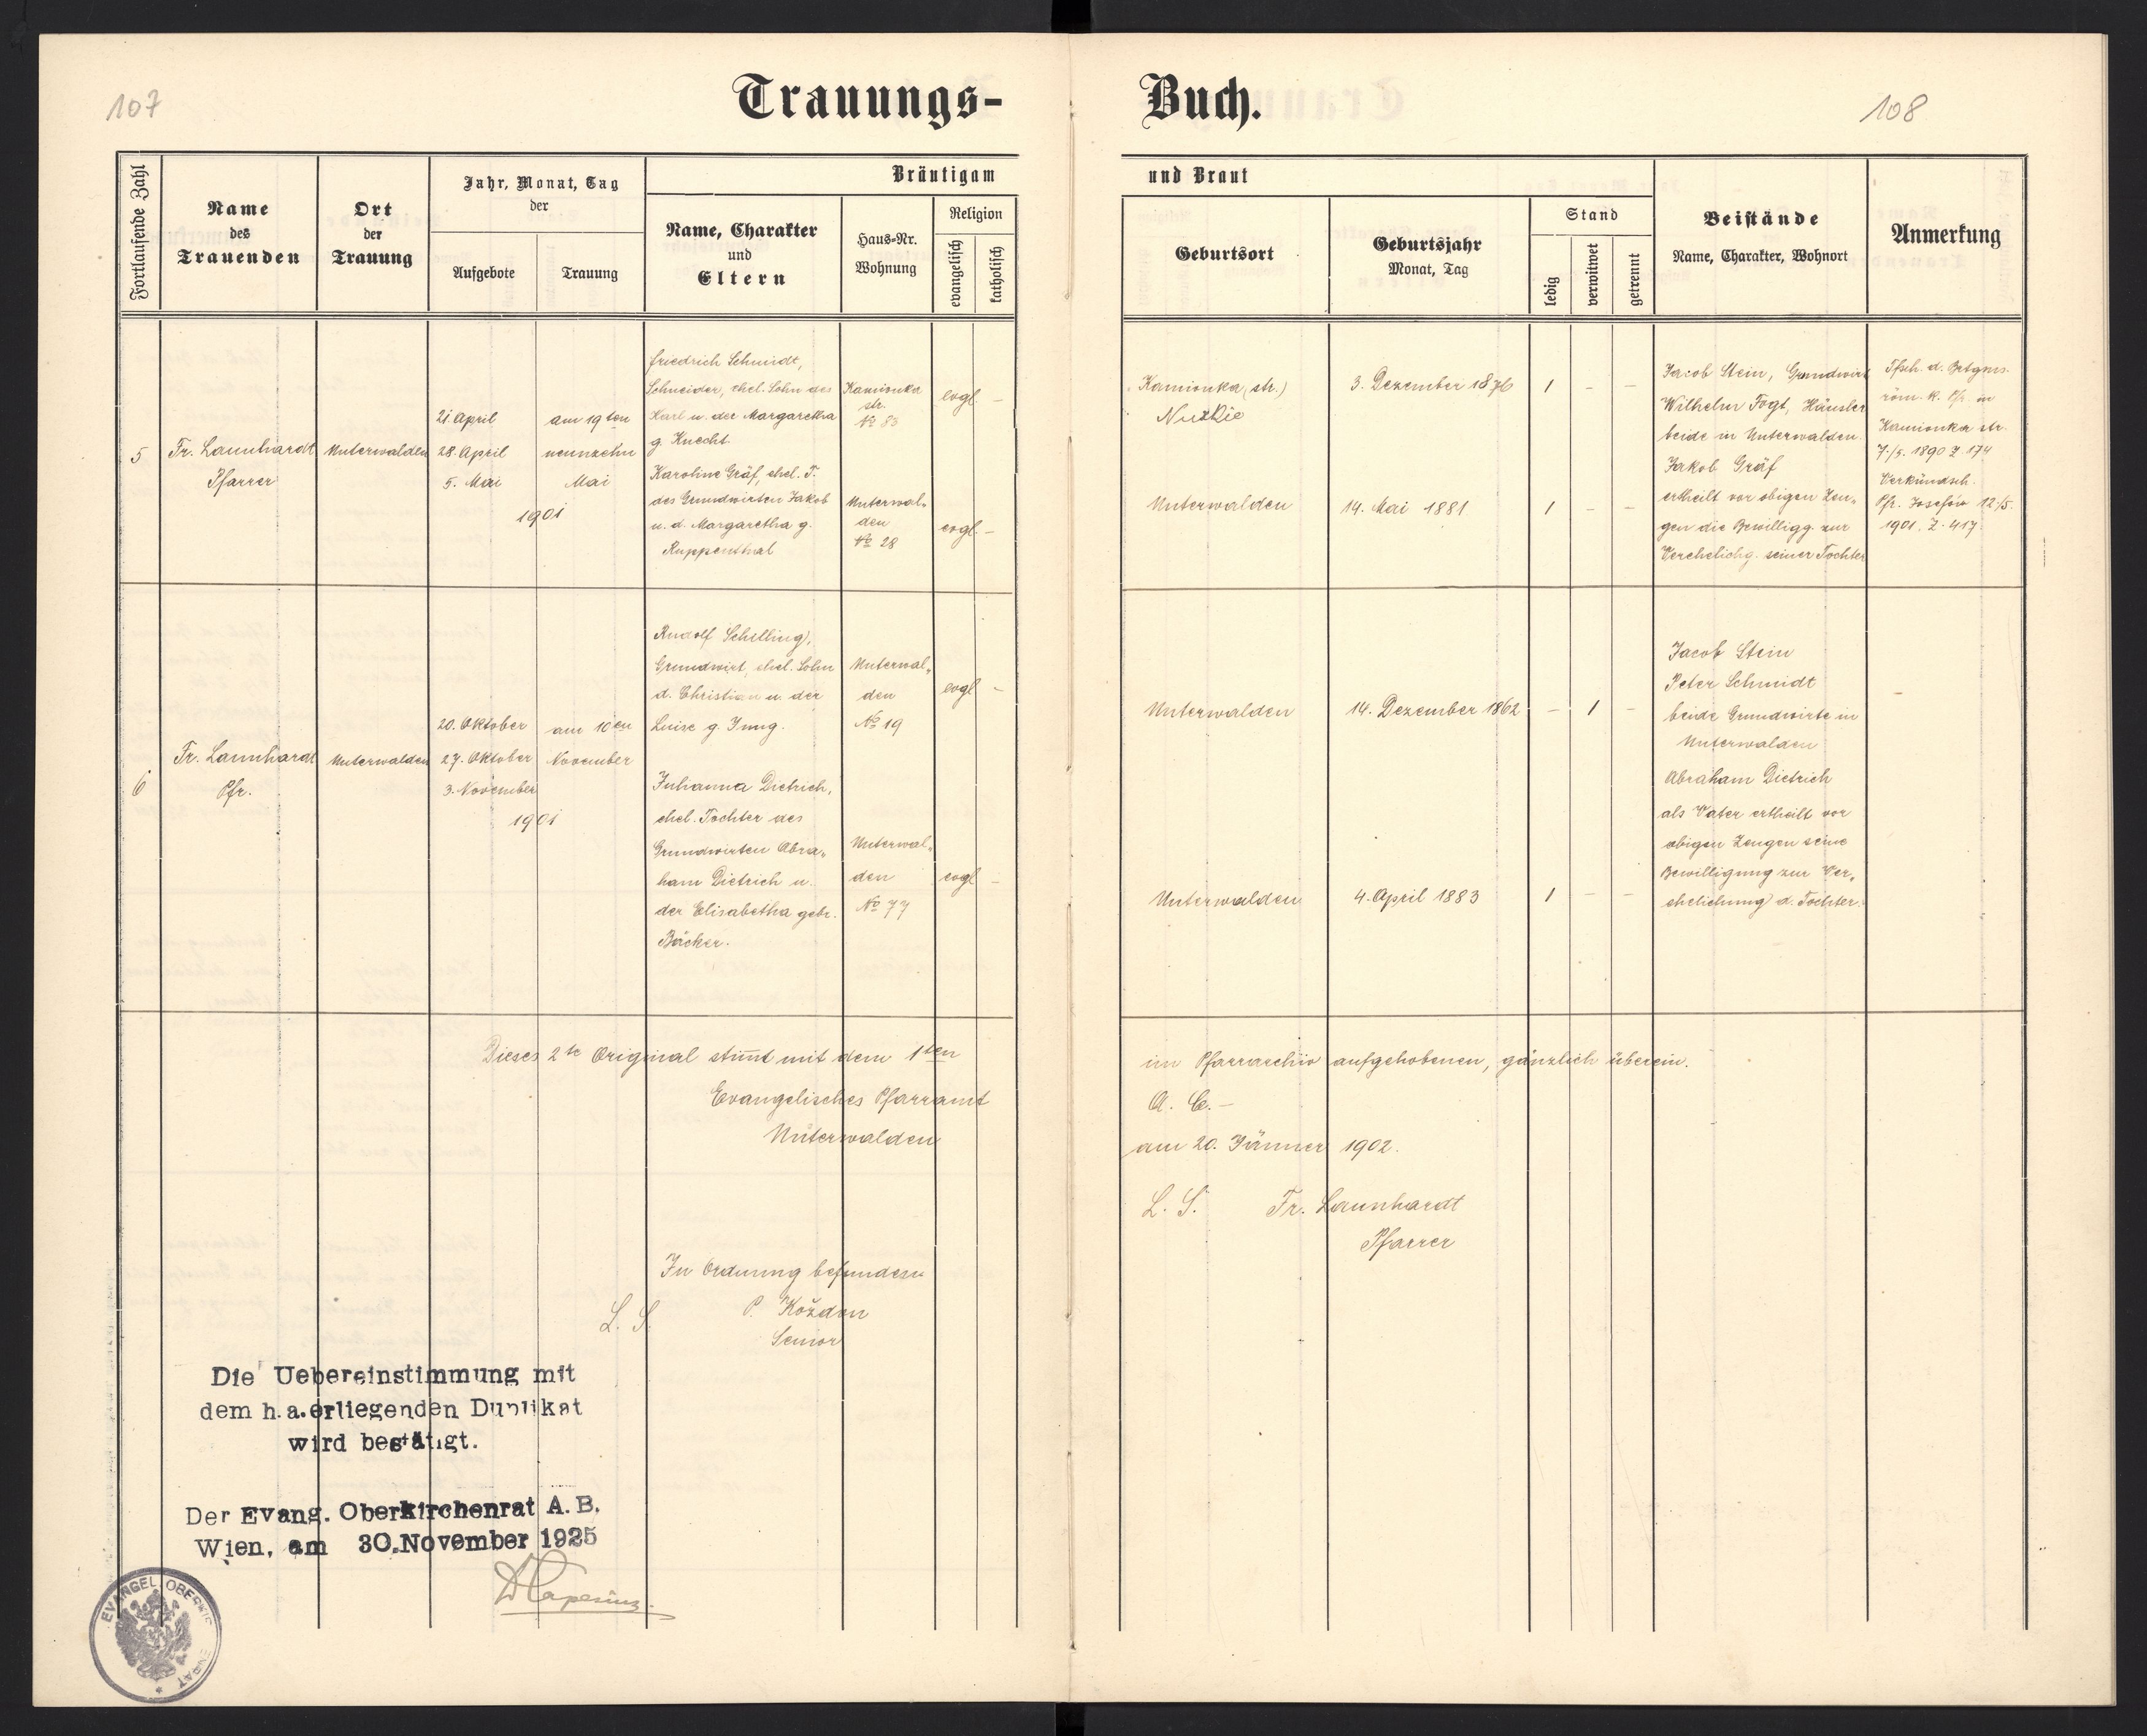 107
Trauungs-
Buch.
108
Fortlaufende Zahl
Name
des
Trauenden
Ort
der
Trauung
Jahr, Monat, Tag
der
Aufgebote
Trauung
Bräutigam
Name, Charakter
und
Eltern
Haus-Nr.
Wohnung
Religion
evangelisch
katholisch
und Braut
Geburtsort
Geburtsjahr
Monat, Tag
Stand
ledig
verwitwet
getrennt
Beistände
Name, Charakter, Wohnort
Anmerkung
5
Fr. Launhardt
Pfarrer
Unterwalden
21. April
28. April
5. Mai
am 19ten
neunzehn
Mai
1901
Friedrich Schmidt,
Schneider, ehel. Sohn des
Karl u. der Margaretha
g. Knecht.
Karoline Gräf, ehel. T.
des Grundwirten Jakob
u. d. Margaretha g.
Ruppenthal
Kamionka
str.
№ 83
Unterwal-
den
№ 28
evgl. -
evgl. -
Kamionka (str.)
Unterwalden
3. Dezember 1876
14. Mai 1881
1 - -
1 - -
Jacob Stein, Grundwirt
Wilhelm Fogt, Häusler
beide in Unterwalden.
Jakob Gräf
ertheilt vor obigen Zeu-
gen die Bewilligg. zur
Verehelichg. seiner Tochter
Tfsch. d. Betgns.
röm. k. Pfr. in
Kamionka str.
7./5. 1890 Z. 174
Verkündsch.
Pfr. Josefów 12./5.
1901. Z. 417.
6
Fr. Launhardt
Pfr.
Unterwalden
20. Oktober
27. Oktober
3. November
am 10en
November
1901
Rudolf Schilling,
Grundwirt, ehel. Sohn
d. Christian u. der
Luise g. Jung.
Johanna Dietrich,
ehel. Tochter des
Grundwirten Abra-
ham Dietrich u.
der Elisabetha geb.
Bäcker.
Unterwal-
den
№ 19
Unterwal-
den
№ 77
evgl -
evgl -
Unterwalden
Unterwalden
14. Dezember 1862
4. April 1883
- 1 -
1 - -
Jacob Stein
Peter Schmidt
beide Grundwirte in
Unterwalden
Abraham Dietrich
als Vater ertheilt vor
obigen Zeugen seine
Bewilligung zur Ver-
ehelichung d. Tochter.
-
Dieses 2te Original stimt mit dem 1ten im Pfarrarchiv aufgehobenen, gänzlich überein.
Evangelisches Pfarramt A. C. -
Unterwalden am 20. Jänner 1902.
L. S. Fr. Launhardt
Pfarrer
In Ordnung befunden
L. S. P. Koždon
Senior
Die Uebereinstimmung mit
dem h.a.erliegenden Duplikat
wird bestätigt.
Der Evang. Oberkirchenrat A.B.
Wien, am 30.November 1925
EVANGEL. OBERKIRCHENRAT